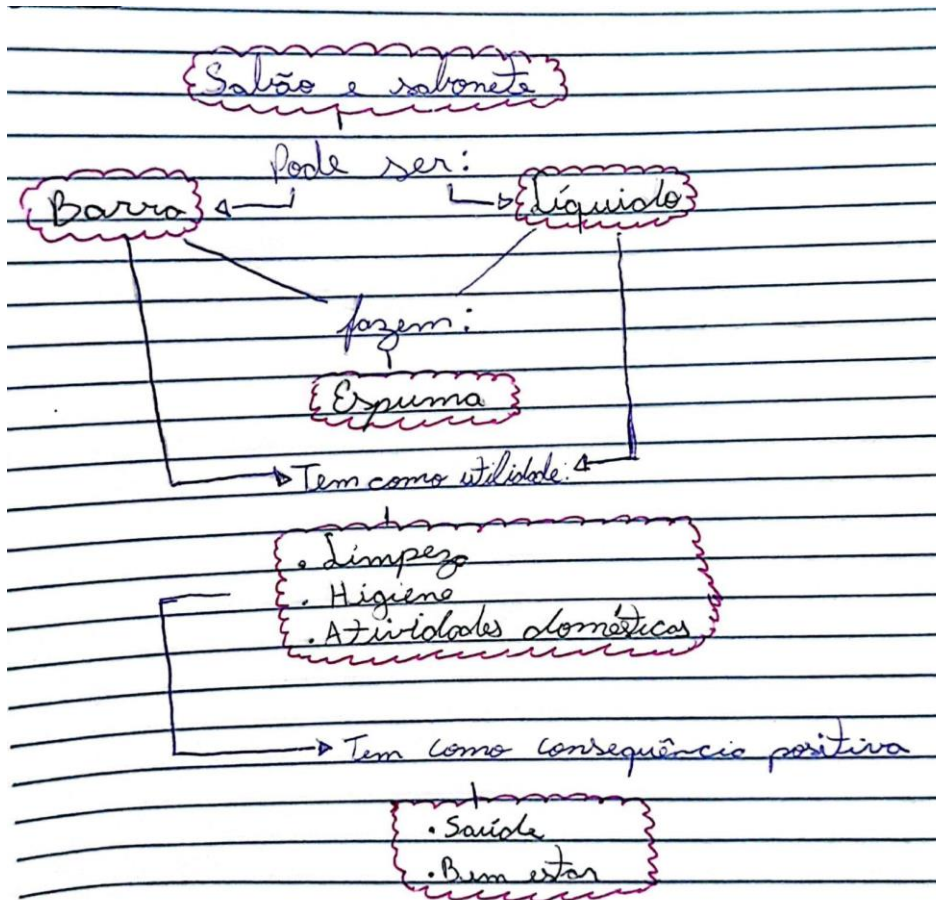 Sabão e sabonete
Pode ser:
Barra
Líquido
fazem:
Espuma
Tem como utilidade:
. Limpeza
. Higiene
. Atividades domésticas
Tem como consequência positiva
. Saúde
. Bem estar